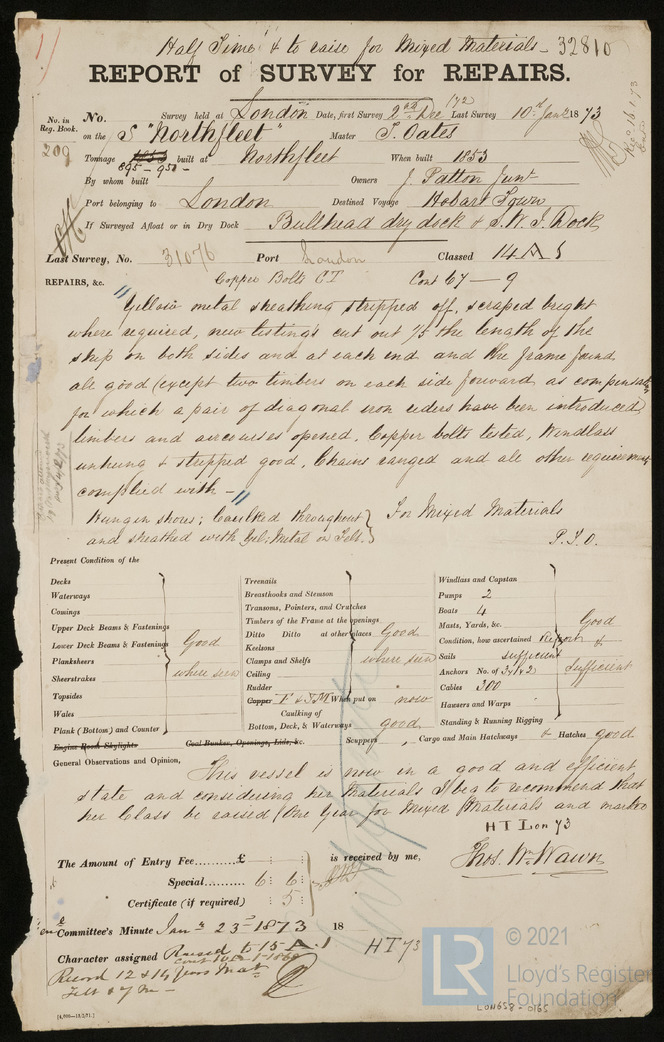 Half Time & to raise for Mixed Materials - 32810
REPORT of SURVEY for REPAIRS.
No. in Reg. Book. No. Survey held at London Date, first Survey 2nd Dec /72 Last Survey 10th Jany 1873
209 on the S "Northfleet" Master T. Oates
Tonnage 895 - 950 - built at Northfleet When built 1853
By whom built Owners J. Patton Junr
Port belonging to London Destined Voyage Hobart Town
If Surveyed Afloat or in Dry Dock Bullhead dry dock & S.W.I. Dock
Last Survey, No. 31076 Port London Classed 14 A
REPAIRS, &c. Copper Bolts CT Cont 67 - 9
"Yellow metal sheathing stripped off, scraped bright
where required, new listings cut out 1/5 the length of the
ship on both sides and at each end and the frame found
all good (except two timbers on each side forward as compensation
for which a pair of diagonal iron riders have been introduced)
timbers and aircourses opened. Copper bolts tested, Windlass
unhung & stripped good. Chains ranged and all other requirements
complied with - "
Rungin shores; Caulked throughout } For Mixed Materials
and sheathed with Yel: Metal on Felt. }
P.T.O.
Present Condition of the
Decks Treenails Windlass and Capstan
Waterways Breasthooks and Stemson Pumps 2
Comings Transoms, Pointers, and Crutches Boats 4
Upper Deck Beams & Fastenings Timbers of the Frame at the openings Masts, Yards, &c. Good
Lower Deck Beams & Fastenings Good Ditto Ditto at other places Good Condition, how ascertained Report &
Planksheers where seen Keelsons Sails sufficient
Sheerstrakes Clamps and Shelfs where seen Anchors No. of 3, 1 & 2 Sufficient
Topsides Ceiling Cables 300
Wales Rudder Hawsers and Warps
Plank (Bottom) and Counter Copper F & YM When put on now Standing & Running Rigging
Caulking of
Bottom, Deck, & Waterways good
Engine Room Skylights Coal Bunker, Openings, Lids, &c. Scuppers , Cargo and Main Hatchways & Hatches good
General Observations and Opinion, This vessel is now in a good and efficient
state and considering her Materials I beg to recommend that
her Class be raised (One Year) for Mixed Materials and marked
HT Lon 73
The Amount of Entry Fee.........£ : : is received by me, Thos. Wm. Wawn
Special......... 6 : 6 :
Certificate (if required) : 5 :
Committee's Minute Jany 23rd 1873 18
Character assigned Raised to 15 A.1 HT 73
Record 12 & 14 Years Mat
Felt & YM -
[4,000-13/2/71.]
LR © 2021
Lloyd's Register
Foundation
LON658-0165